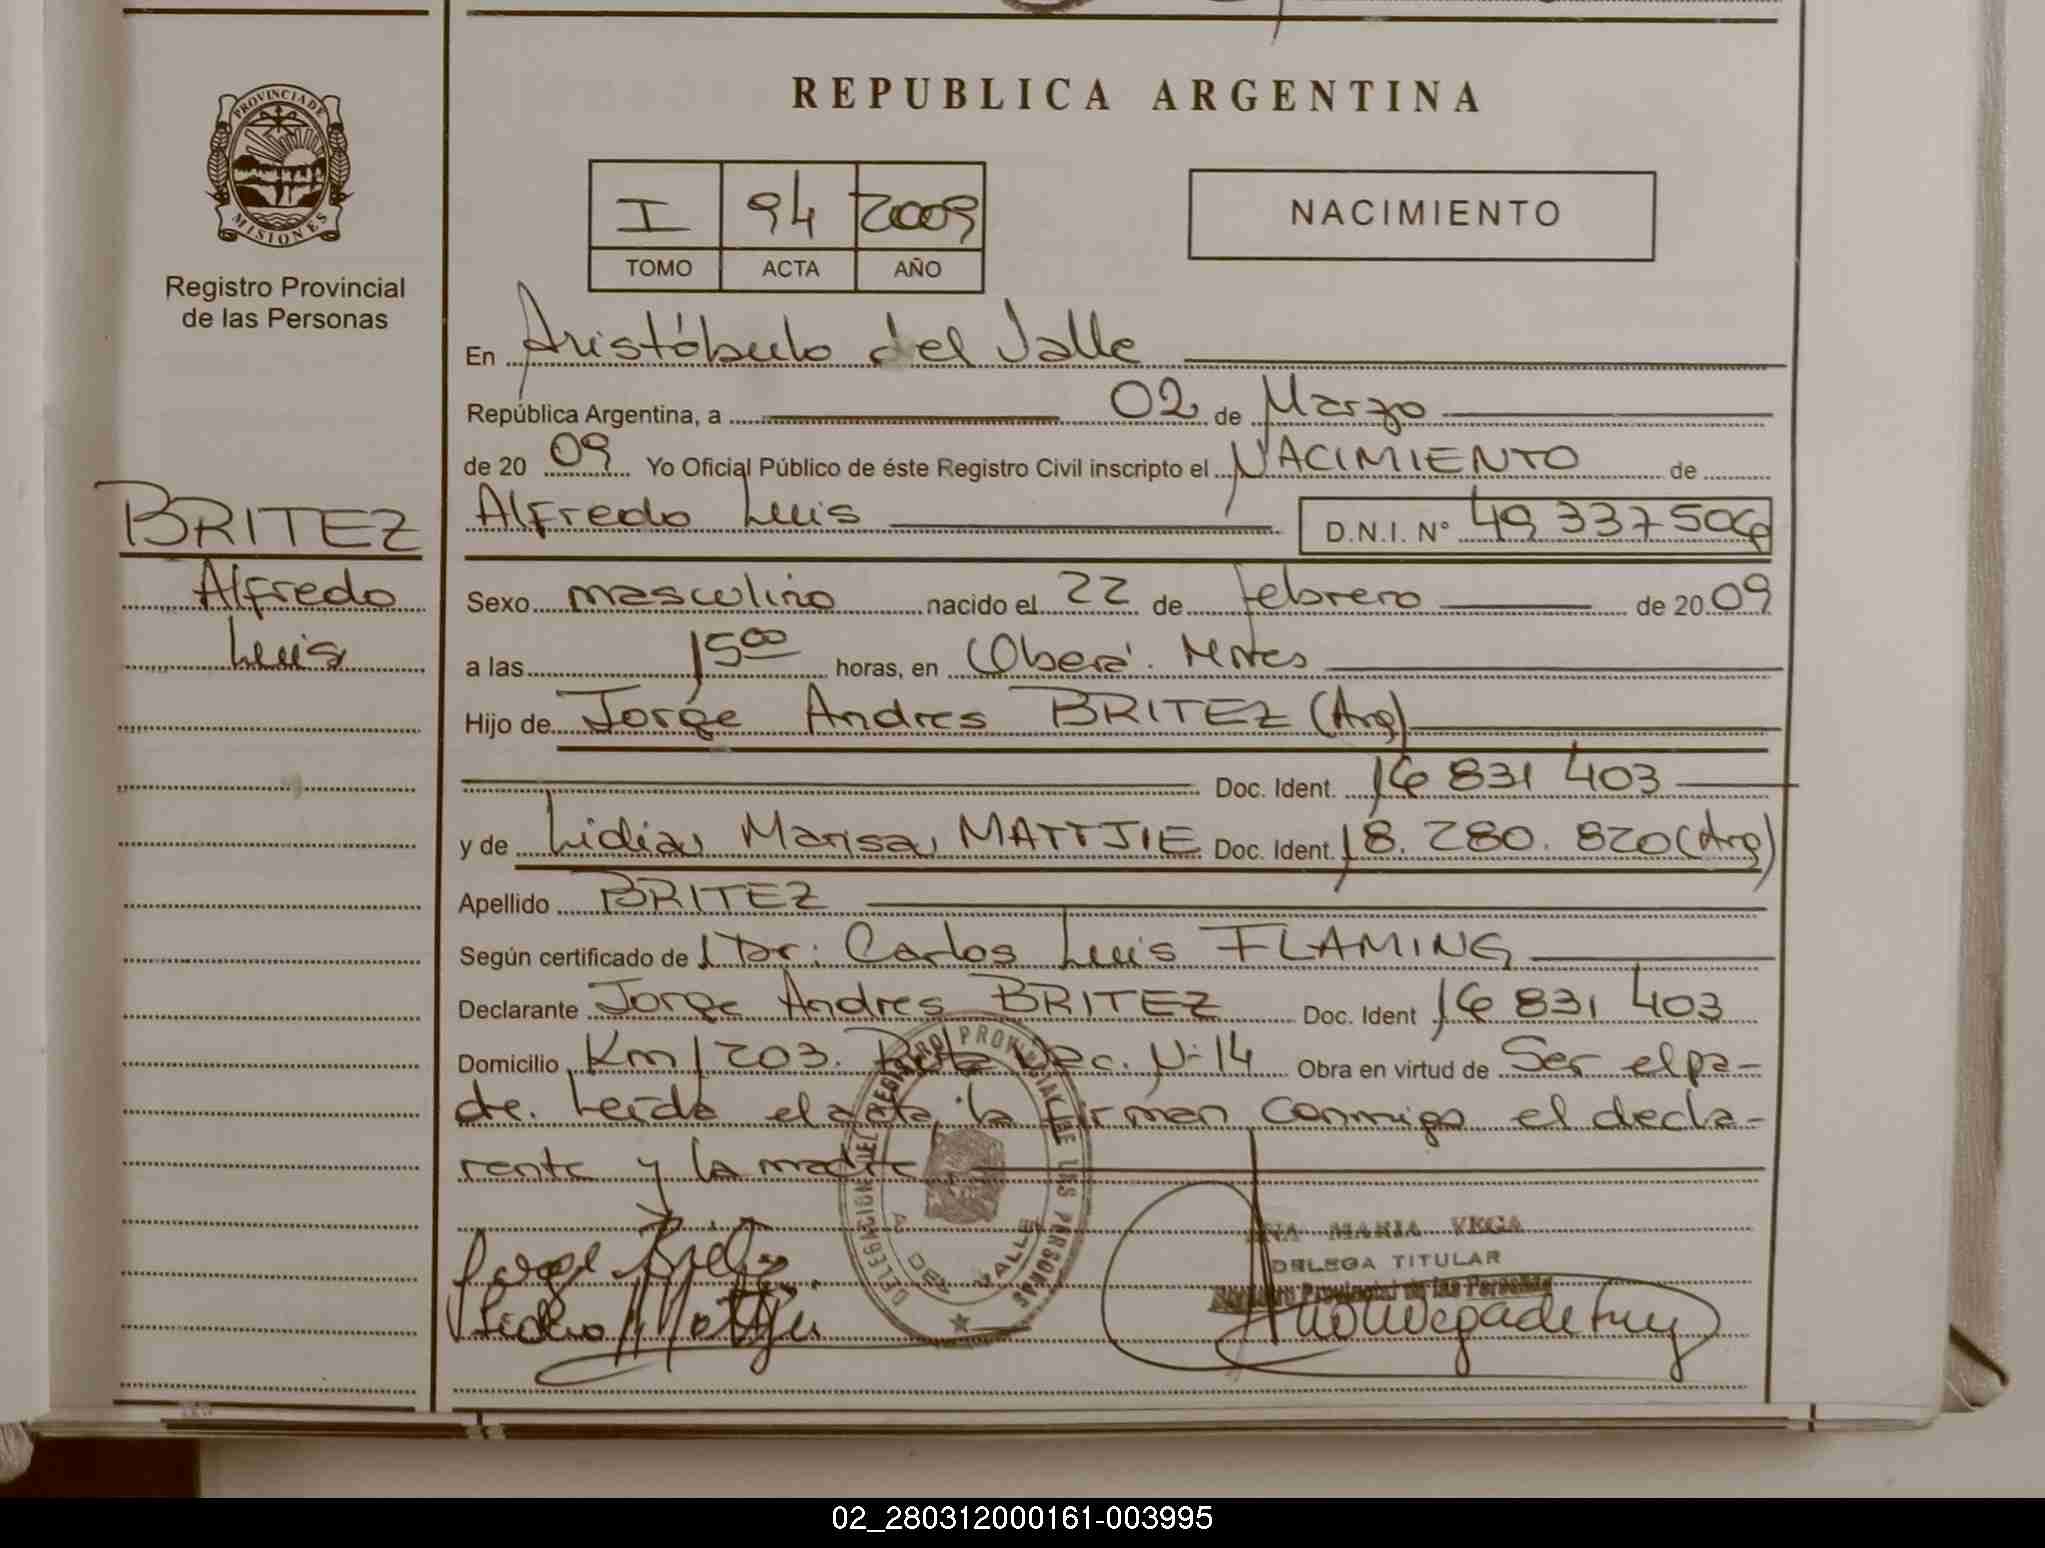 REPUBLICA ARGENTINA
PROVINCIA DE
MISIONES
Registro Provincial
de las Personas
I 94 2009
TOMO ACTA AÑO
NACIMIENTO
En Aristóbulo del Valle
República Argentina, a 02 de Marzo
de 20 09 Yo Oficial Público de éste Registro Civil inscripto el NACIMIENTO de
BRITEZ
Alfredo
Luis
Alfredo Luis D.N.I. N° 49 337 506
Sexo masculino nacido el 22 de febrero de 20 09
a las 15 00 horas, en Oberá. Mnes
Hijo de Jorge Andres BRITEZ (Arg)
Doc. Ident. 16 831 403
y de Lidia Marisa MATTJIE Doc. Ident. 18. 280. 820 (Arg)
Apellido BRITEZ
Según certificado de Dr. Carlos Luis FLAMING
Declarante Jorge Andres BRITEZ Doc. Ident 16 831 403
Domicilio Km 203. Ruta Nac. N° 14 Obra en virtud de Ser el pa-
dre. Leída el acta, la firman conmigo el decla-
rante y la madre
DELEGACION DEL REGISTRO PROVINCIAL DE LAS PERSONAS
A DEL VALLE
ANA MARIA VEGA
DELEGA TITULAR
Registro Provincial de las Personas
Jorge Britez
Lidia Mattjie
02_280312000161-003995